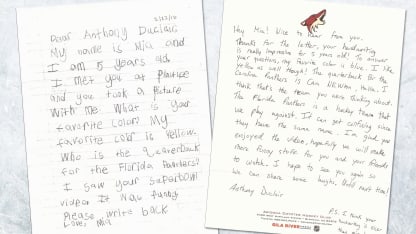 2/23/18
Dear Anthony Duclair
My name is Mia and
I am 5 years old.
I met you at Practice
and you took a Picture
With me. What is your
favorite color? My
favorite color is Yellow.
Who is the Quarterback
for the Florida Panthers?
I saw your superbowl
video. It Was funny
Please write back
Love, Mia
Hey Mia! Nice to hear from you.
Thanks for the letter, your handwriting
is really impressive for 5 years old! To answer
your questions, my favorite color is blue. I like
yellow as well though! The quarterback for the
Carolina Panthers is Cam Newton, haha. I
think that's the team you were thinking about.
The Florida Panthers is a hockey team that
we play against. It can get confusing since
they have the same name. I'm glad you
enjoyed the video, hopefully we will make
more funny stuff for you and your friends
to watch. I hope to see you again so
we can share some laughs. Until next time!
Anthony Duclair
P.S. I think your
ARIZONA COYOTES HOCKEY CLUB
GILA RIVER